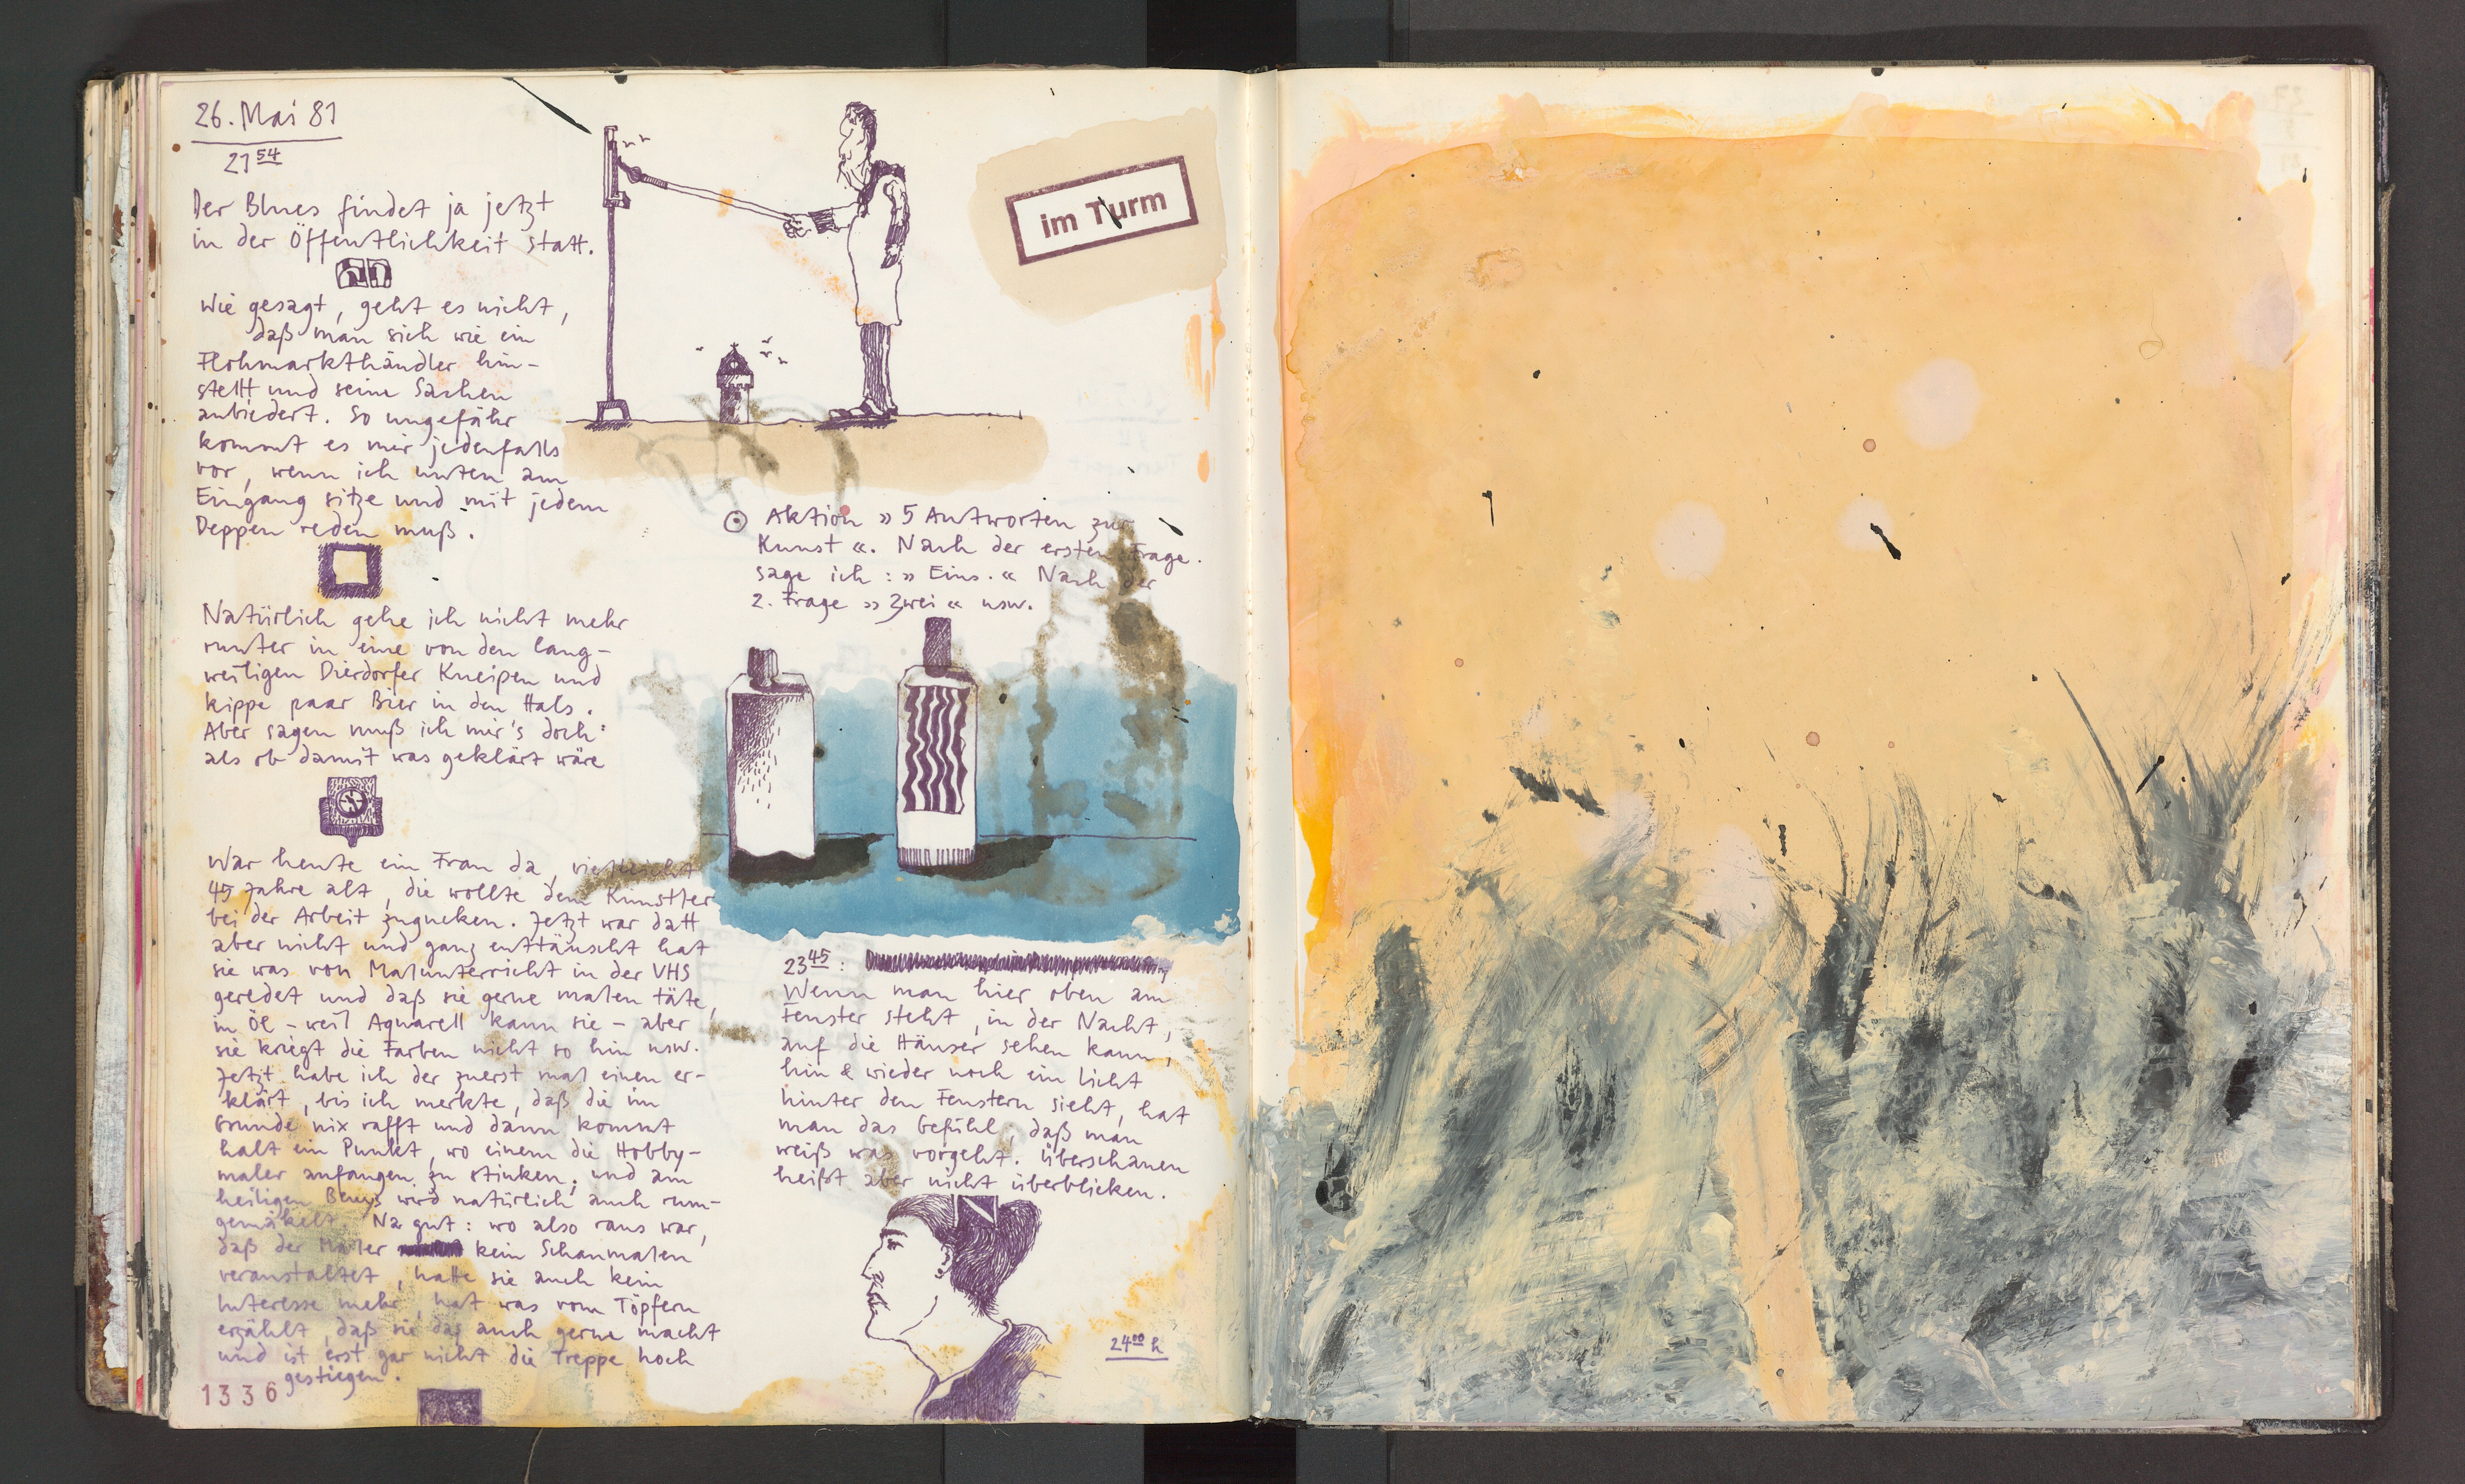 26. Mai 81
21 54
Der Blues findet ja jetzt
in der Öffentlichkeit statt.
Wie gesagt, geht es nicht,
daß man sich wie ein
Flohmarkthändler hin-
stellt und seine Sachen
anbiedert. So ungefähr
kommt es mir jedenfalls
vor, wenn ich unten am
Eingang sitze und mit jedem
Deppen reden muß.
Natürlich gehe ich nicht mehr
runter in eine von den lang-
weiligen Dierdorfer Kneipen und
kippe paar Bier in den Hals.
Aber sagen muß ich mir's doch:
als ob damit was geklärt wäre
War heute ein Frau da, vielleicht
45 Jahre alt, die wollte dem Künstler
bei der Arbeit zugucken. Jetzt war datt
aber nicht und ganz enttäuscht hat
sie was von Malunterricht in der VHS
geredet und daß sie gerne malen täte,
in Öl – weil Aquarell kann sie – aber
sie kriegt die Farben nicht so hin usw.
Jetzt habe ich der zuerst mal einen er-
klärt, bis ich merkte, daß die im
Grunde nix rafft und dann kommt
halt ein Punkt, wo einem die Hobby-
maler anfangen zu stinken; und am
heiligen Beuys wird natürlich auch rum-
gemäkelt. Na gut: wo also raus war,
daß der Maler kein Schaumalen
veranstaltet, hatte sie auch kein
Interesse mehr, hat was vom Töpfern
erzählt, daß sie das auch gerne macht
und ist erst gar nicht die Treppe hoch
gestiegen.
1336
im Turm
Aktion »5 Antworten zur
Kunst«. Nach der ersten Frage
sage ich: »Eins.« Nach der
2. Frage »Zwei« usw.
23 45:
Wenn man hier oben am
Fenster steht, in der Nacht,
auf die Häuser sehen kann,
hin & wieder noch ein Licht
hinter den Fenstern sieht, hat
man das Gefühl, daß man
weiß was vorgeht. Überschauen
heißt aber nicht überblicken.
24 00 h